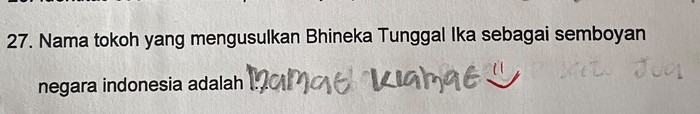 27. Nama tokoh yang mengusulkan Bhineka Tunggal Ika sebagai semboyan
negara indonesia adalah Mamat Kiamat